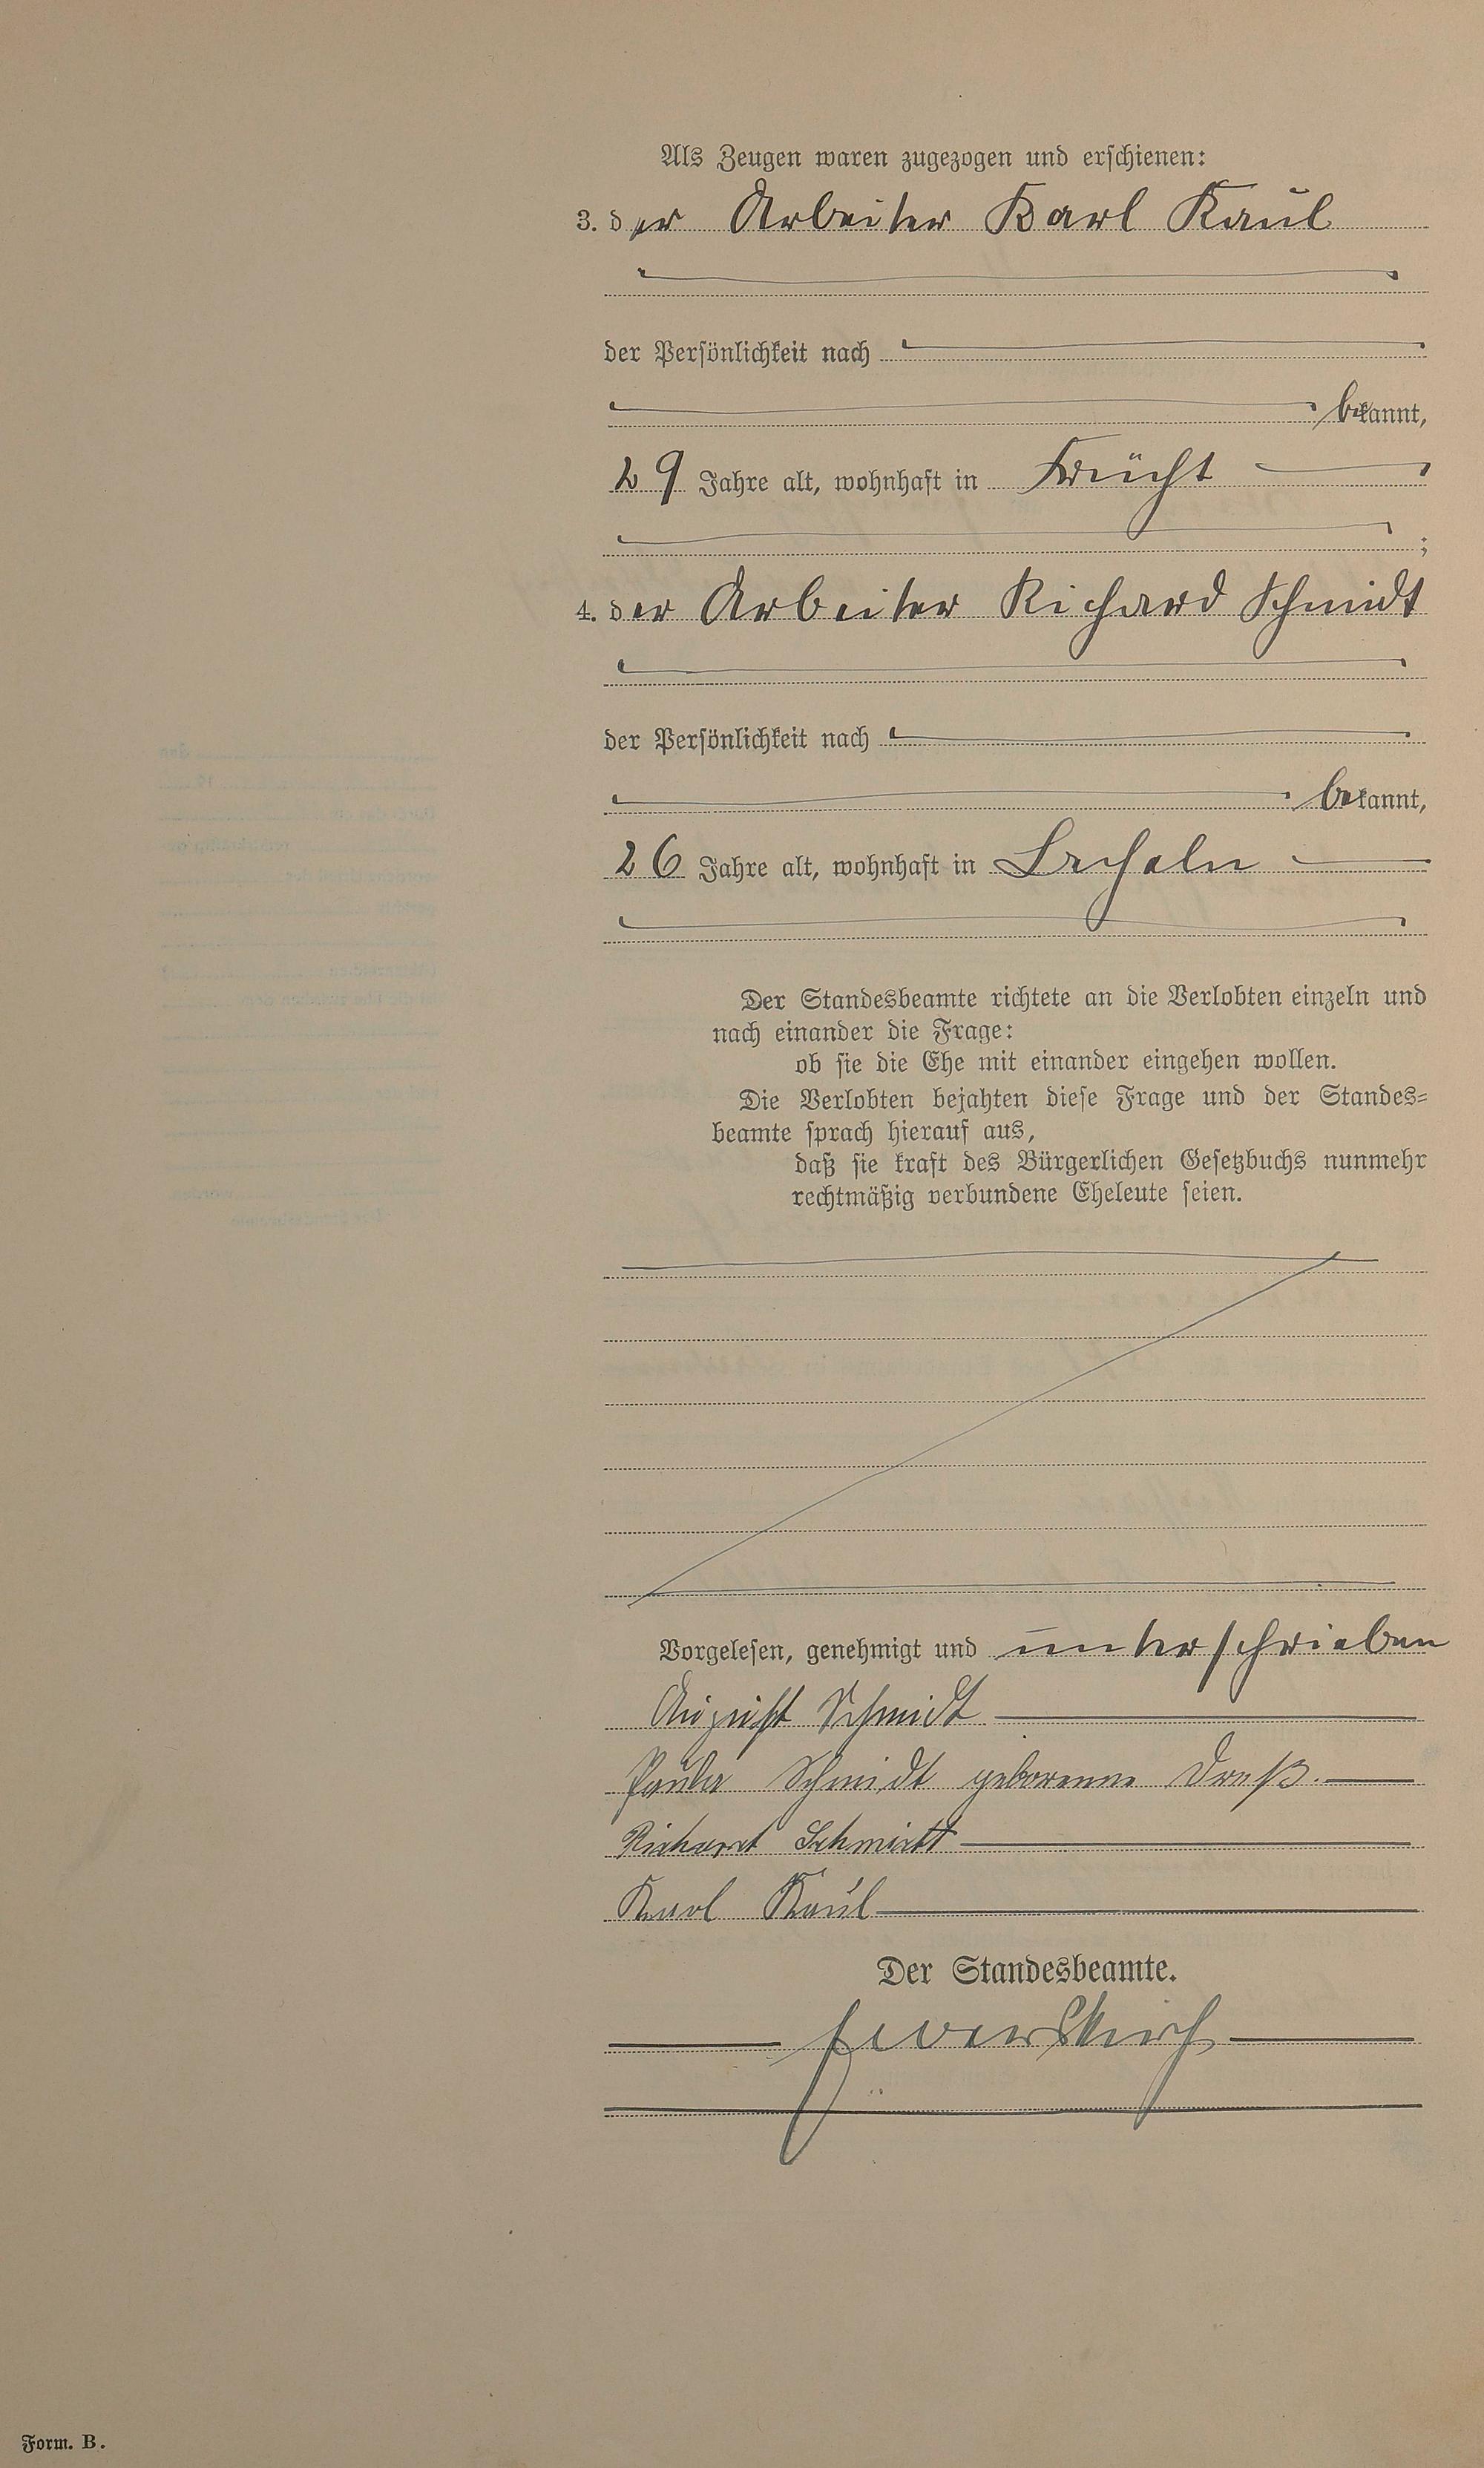 Als Zeugen waren zugezogen und erschienen:
3. der Arbeiter Karl Kaul
der Persönlichkeit nach
bekannt,
29 Jahre alt, wohnhaft in Frücht
;
4. der Arbeiter Richard Schmidt
der Persönlichkeit nach
bekannt,
26 Jahre alt, wohnhaft in
Der Standesbeamte richtete an die Verlobten einzeln und
nach einander die Frage:
ob sie die Ehe mit einander eingehen wollen.
Die Verlobten bejahten diese Frage und der Standes=
beamte sprach hierauf aus,
daß sie kraft des Bürgerlichen Gesetzbuchs nunmehr
rechtmäßig verbundene Eheleute seien.
Vorgelesen, genehmigt und unterschrieben
August Schmidt
Paula Schmidt geborenne
Richard Schmidt
Karl Kaul
Der Standesbeamte.
Form. B.